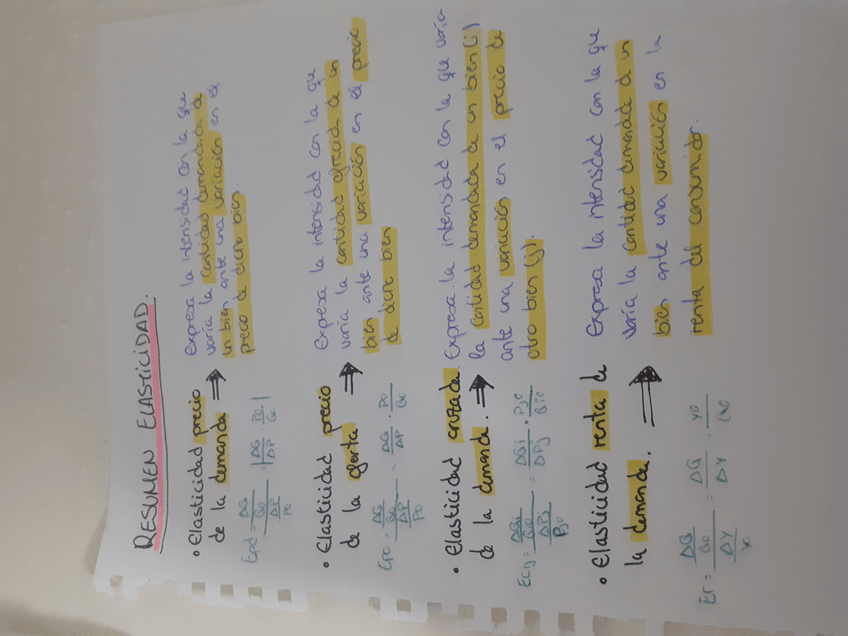 RESUMEN ELASTICIDAD.
• Elasticidad precio de la demanda ⇒
Expresa la intensidad con la que
varía la cantidad demandada de
un bien ante una variación en el
precio de dicho bien.
Epd = (ΔQ/Q0)/(ΔP/P0) |ΔQ/ΔP · P0/Q0|
• Elasticidad precio de la oferta ⇒
Expresa la intensidad con la que
varía la cantidad ofrecida de un
bien, ante una variación en el precio
de dicho bien
Epo = (ΔQ/Q0)/(ΔP/P0) = ΔQ/ΔP · P0/Q0
• Elasticidad cruzada de la demanda. ⇒
Expresa la intensidad con la que varía
la cantidad demandada de un bien (i)
ante una variación en el precio de
otro bien (j).
Ecij = (ΔQi/Qi0)/(ΔPj/Pj0) = ΔQi/ΔPj · Pj0/Qi0
• Elasticidad renta de la demanda. ⇒
Expresa la intensidad con la que
varía la cantidad demandada de un
bien ante una variación en la
renta del consumidor.
Er = (ΔQ/Q0)/(ΔY/Y0) = ΔQ/ΔY · Y0/Q0